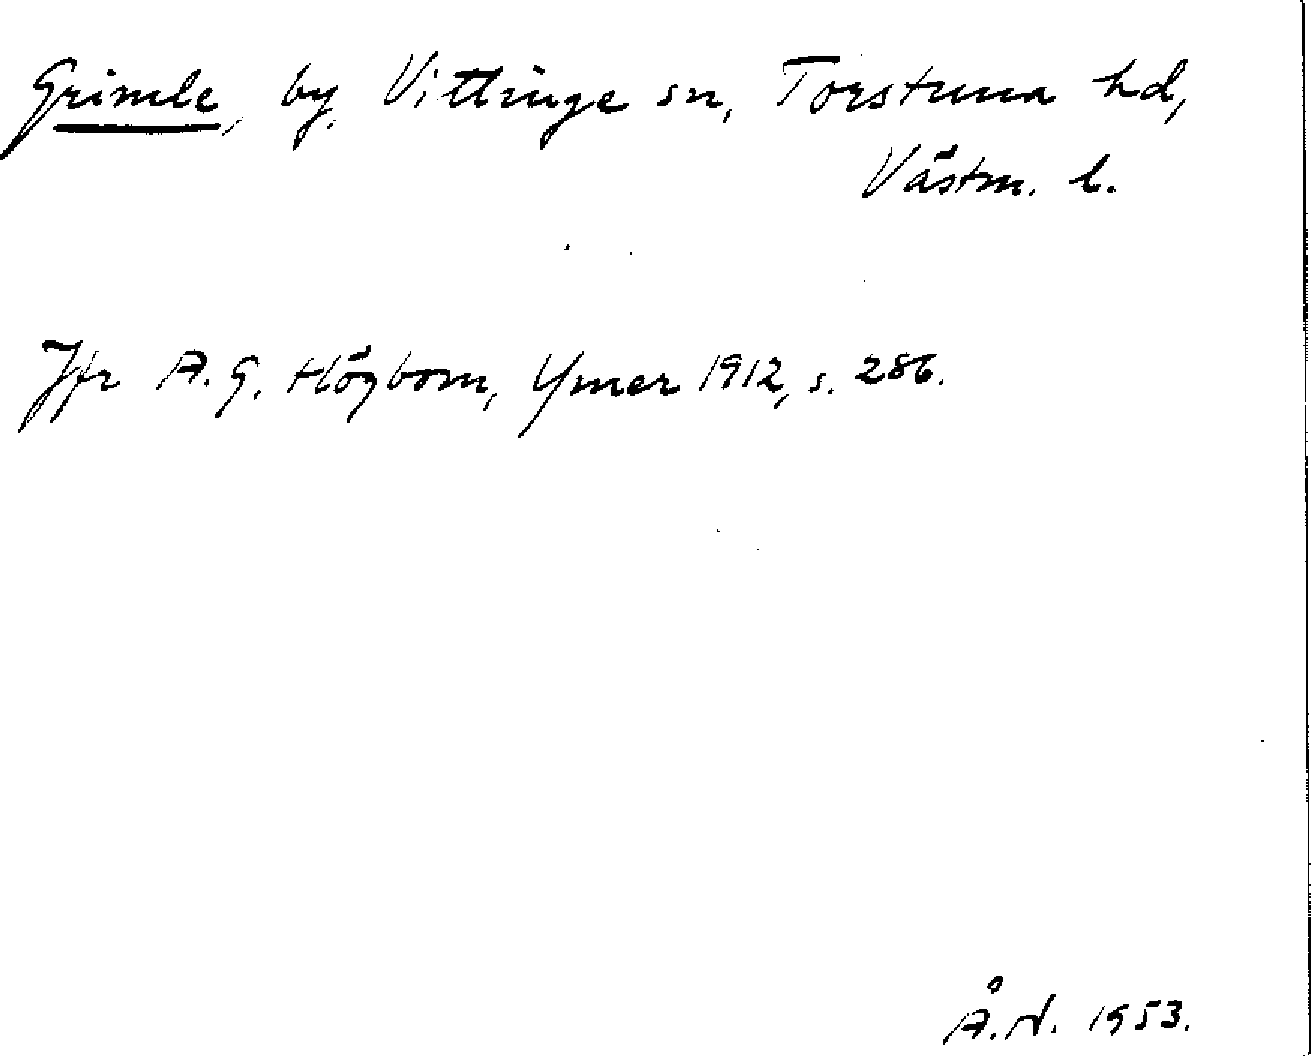 Grimle, by, Vittinge sn, Torstuna hd,
Västm. l.
Jfr A. G. Högbom, Ymer 1912, s. 286.
Å. N. 1953.